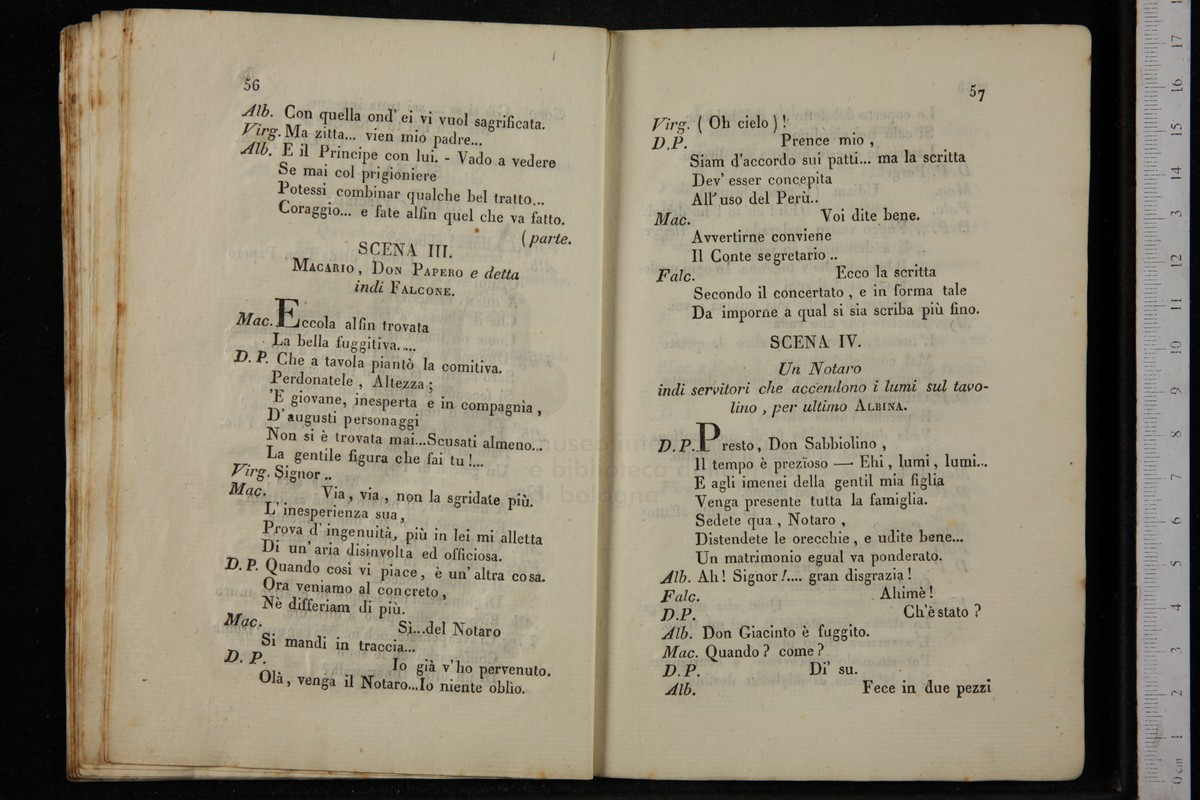 56
Alb. Con quella ond' ei vi vuol sagrificata.
Virg. Ma zitta... vien mio padre...
Alb. E il Principe con lui. - Vado a vedere
Se mai col prigioniere
Potessi combinar qualche bel tratto...
Coraggio... e fate alfin quel che va fatto.
(parte.
SCENA III.
MACARIO, DON PAPERO e detta
indi FALCONE.
Mac. Eccola alfin trovata
La bella fuggitiva.....
D. P. Che a tavola piantò la comitiva.
Perdonatele, Altezza;
'E giovane, inesperta e in compagnia,
D'augusti personaggi
Non si è trovata mai...Scusati almeno...
La gentile figura che fai tu!...
Virg. Signor..
Mac. Via, via, non la sgridate più.
L'inesperienza sua,
Prova d'ingenuità, più in lei mi alletta
Di un'aria disinvolta ed officiosa.
D. P. Quando così vi piace, è un'altra cosa.
Ora veniamo al concreto,
Nè differiam di più.
Mac. Sì...del Notaro
Si mandi in traccia...
D. P. Io già v'ho pervenuto.
Olà, venga il Notaro...Io niente oblio.
57
Virg. (Oh cielo)!
D.P. Prence mio,
Siam d'accordo sui patti... ma la scritta
Dev' esser concepita
All'uso del Perù..
Mac. Voi dite bene.
Avvertirne conviene
Il Conte segretario..
Falc. Ecco la scritta
Secondo il concertato, e in forma tale
Da imporne a qual si sia scriba più fino.
SCENA IV.
Un Notaro
indi servitori che accendono i lumi sul tavo-
lino, per ultimo ALBINA.
D.P. Presto, Don Sabbiolino,
Il tempo è prezïoso — Ehi, lumi, lumi...
E agli imenei della gentil mia figlia
Venga presente tutta la famiglia.
Sedete qua, Notaro,
Distendete le orecchie, e udite bene...
Un matrimonio egual va ponderato.
Alb. Ah! Signor!.... gran disgrazia!
Falc. Ahimè!
D.P. Ch'è stato?
Alb. Don Giacinto è fuggito.
Mac. Quando? come?
D.P. Di' su.
Alb. Fece in due pezzi